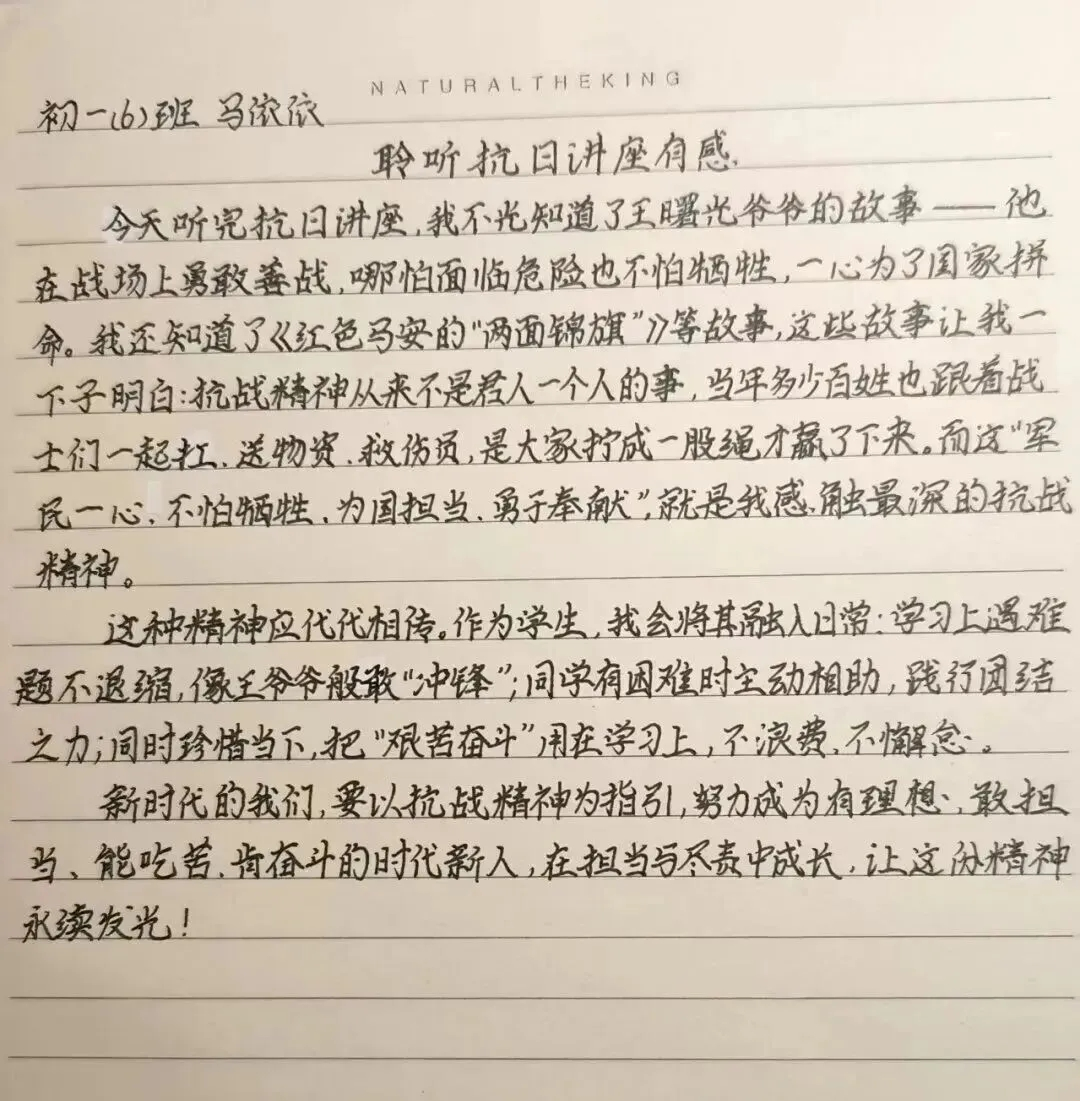 NATURALTHEKING
初一(6)班 马依依
聆听抗日讲座有感
今天听完抗日讲座,我不光知道了王曙光爷爷的故事——他
在战场上勇敢善战,哪怕面临危险也不怕牺牲,一心为了国家拼
命。我还知道了《红色马安的“两面锦旗”》等故事,这些故事让我一
下子明白:抗战精神从来不是君人一个人的事,当年多少百姓也跟着战
士们一起扛、送物资、救伤员,是大家拧成一股绳才赢了下来。而这“军
民一心、不怕牺牲、为国担当、勇于奉献”,就是我感触最深的抗战
精神。
这种精神应代代相传。作为学生,我会将其融入日常:学习上遇难
题不退缩,像王爷爷般敢“冲锋”;同学有困难时主动相助,践行团结
之力;同时珍惜当下,把“艰苦奋斗”用在学习上,不浪费、不懈怠。
新时代的我们,要以抗战精神为指引,努力成为有理想、敢担
当、能吃苦、肯奋斗的时代新人,在担当与尽责中成长,让这份精神
永续发光!